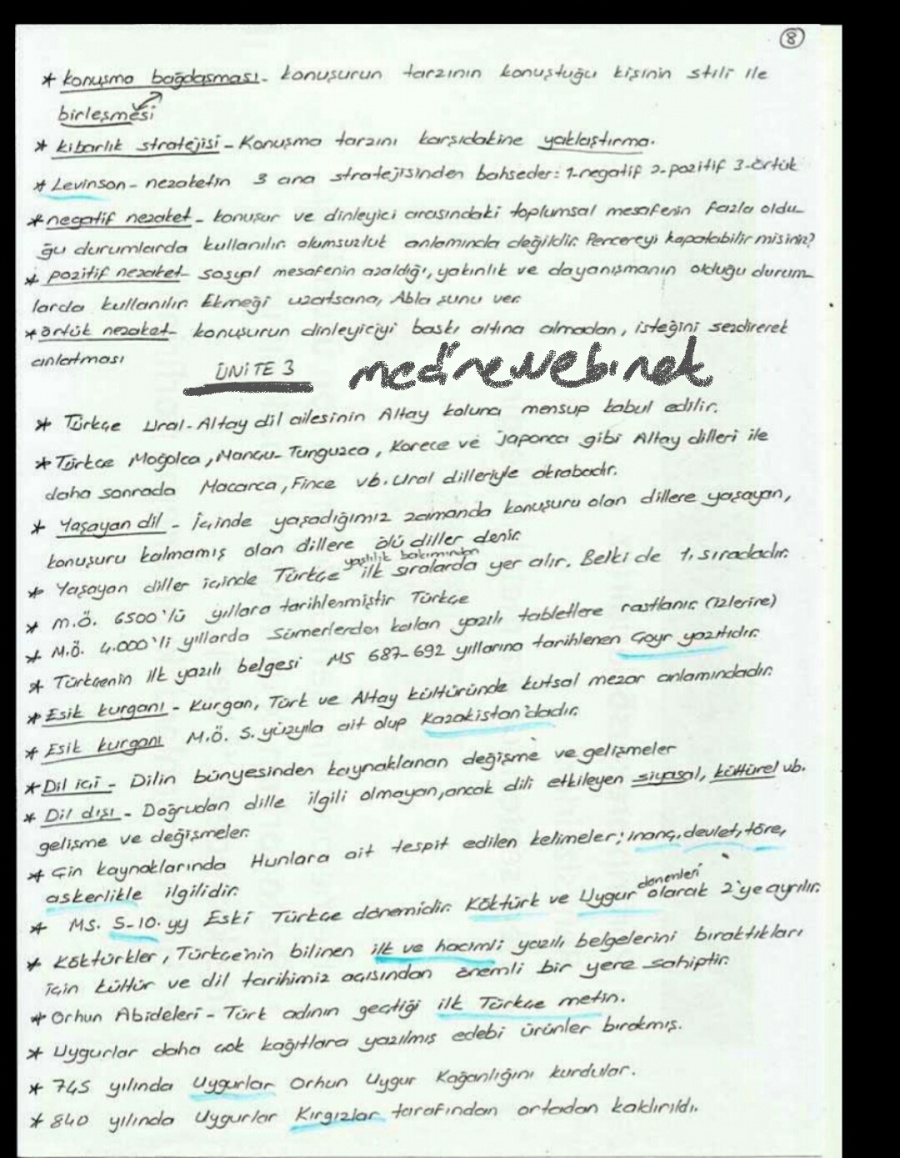 8
* konuşma bağdaşması - konuşurun tarzının konuştuğu kişinin stili ile
birleşmesi
* kibarlık stratejisi - Konuşma tarzını karşıdakine yaklaştırma.
* Levinson - nezaketin 3 ana stratejisinden bahseder: 1-negatif 2-pozitif 3-örtük
* negatif nezaket - konuşur ve dinleyici arasındaki toplumsal mesafenin fazla oldu-
ğu durumlarda kullanılır. olumsuzluk anlamında değildir. Pencereyi kapatabilir misiniz?
* pozitif nezaket - sosyal mesafenin azaldığı, yakınlık ve dayanışmanın olduğu durum-
larda kullanılır. Ekmeği uzatsana, Abla şunu ver.
* örtük nezaket - konuşurun dinleyiciyi baskı altına almadan, isteğini sezdirerek
anlatması
ÜNİTE 3 medinewebinek
* Türkçe Ural-Altay dil ailesinin Altay koluna mensup kabul edilir.
* Türkçe Moğolca, Mançu-Tunguzca, Korece ve Japonca gibi Altay dilleri ile
daha sonrada Macarca, Fince vb. Ural dilleriyle akrabadır.
* Yaşayan dil - İçinde yaşadığımız zamanda konuşuru olan dillere yaşayan,
konuşuru kalmamış olan dillere ölü diller denir.
* Yaşayan diller içinde Türkçe yaşlılık bakımından ilk sıralarda yer alır. Belki de 1. sıradadır.
* M.Ö. 6500'lü yıllara tarihlenmiştir Türkçe
* M.Ö. 4.000'li yıllarda Sümerlerden kalan yazılı tabletlere rastlanır. (izlerine)
* Türkçenin ilk yazılı belgesi MS 687-692 yıllarına tarihlenen Çoyr yazıtıdır.
* Esik kurganı - Kurgan, Türk ve Altay kültüründe kutsal mezar anlamındadır.
* Esik kurganı M.Ö. 5. yüzyıla ait olup Kazakistan'dadır.
* Dil içi - Dilin bünyesinden kaynaklanan değişme ve gelişmeler
* Dil dışı - Doğrudan dille ilgili olmayan, ancak dili etkileyen siyasal, kültürel vb.
gelişme ve değişmeler.
* Çin kaynaklarında Hunlara ait tespit edilen kelimeler; inanç, devlet, töre,
askerlikle ilgilidir.
* MS. 5-10. yy Eski Türkçe dönemidir. Köktürk ve Uygur dönemleri olarak 2'ye ayrılır.
* Köktürkler, Türkçe'nin bilinen ilk ve hacimli yazılı belgelerini bıraktıkları
için kültür ve dil tarihimiz açısından önemli bir yere sahiptir.
* Orhun Abideleri - Türk adının geçtiği ilk Türkçe metin.
* Uygurlar daha çok kağıtlara yazılmış edebi ürünler bırakmış.
* 745 yılında Uygurlar Orhun Uygur Kağanlığını kurdular.
* 840 yılında Uygurlar Kırgızlar tarafından ortadan kaldırıldı.